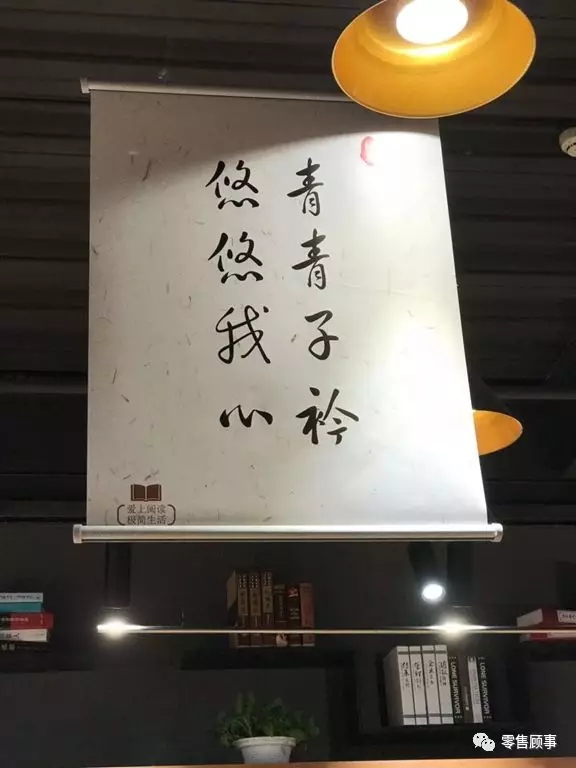 青青子衿
悠悠我心
爱上阅读
极简生活
LONE SURVIVOR
LONE SURVIVOR
零售顾事